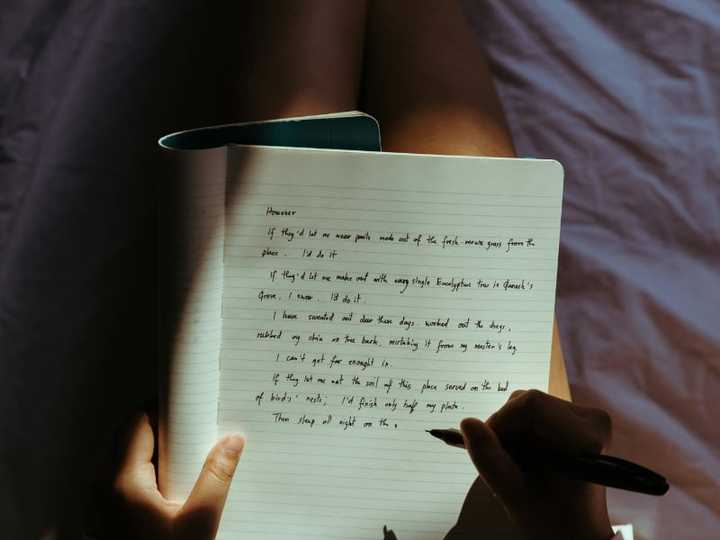 However
If they'd let me wear pants made out of the fresh-move grass from the
place. I'd do it
If they'd let me make out with every single Eucalyptus tree in Qanash's
Grove, I swear. I'd do it.
I have sweated out dew these days, worked out the dregs,
rubbed my skin on tree bark, mistaking it from my master's leg
I can't get far enought in.
If they let me eat the soil of this place served on the bed
of birds' nests; I'd finish only half my plate.
Then sleep all night on the